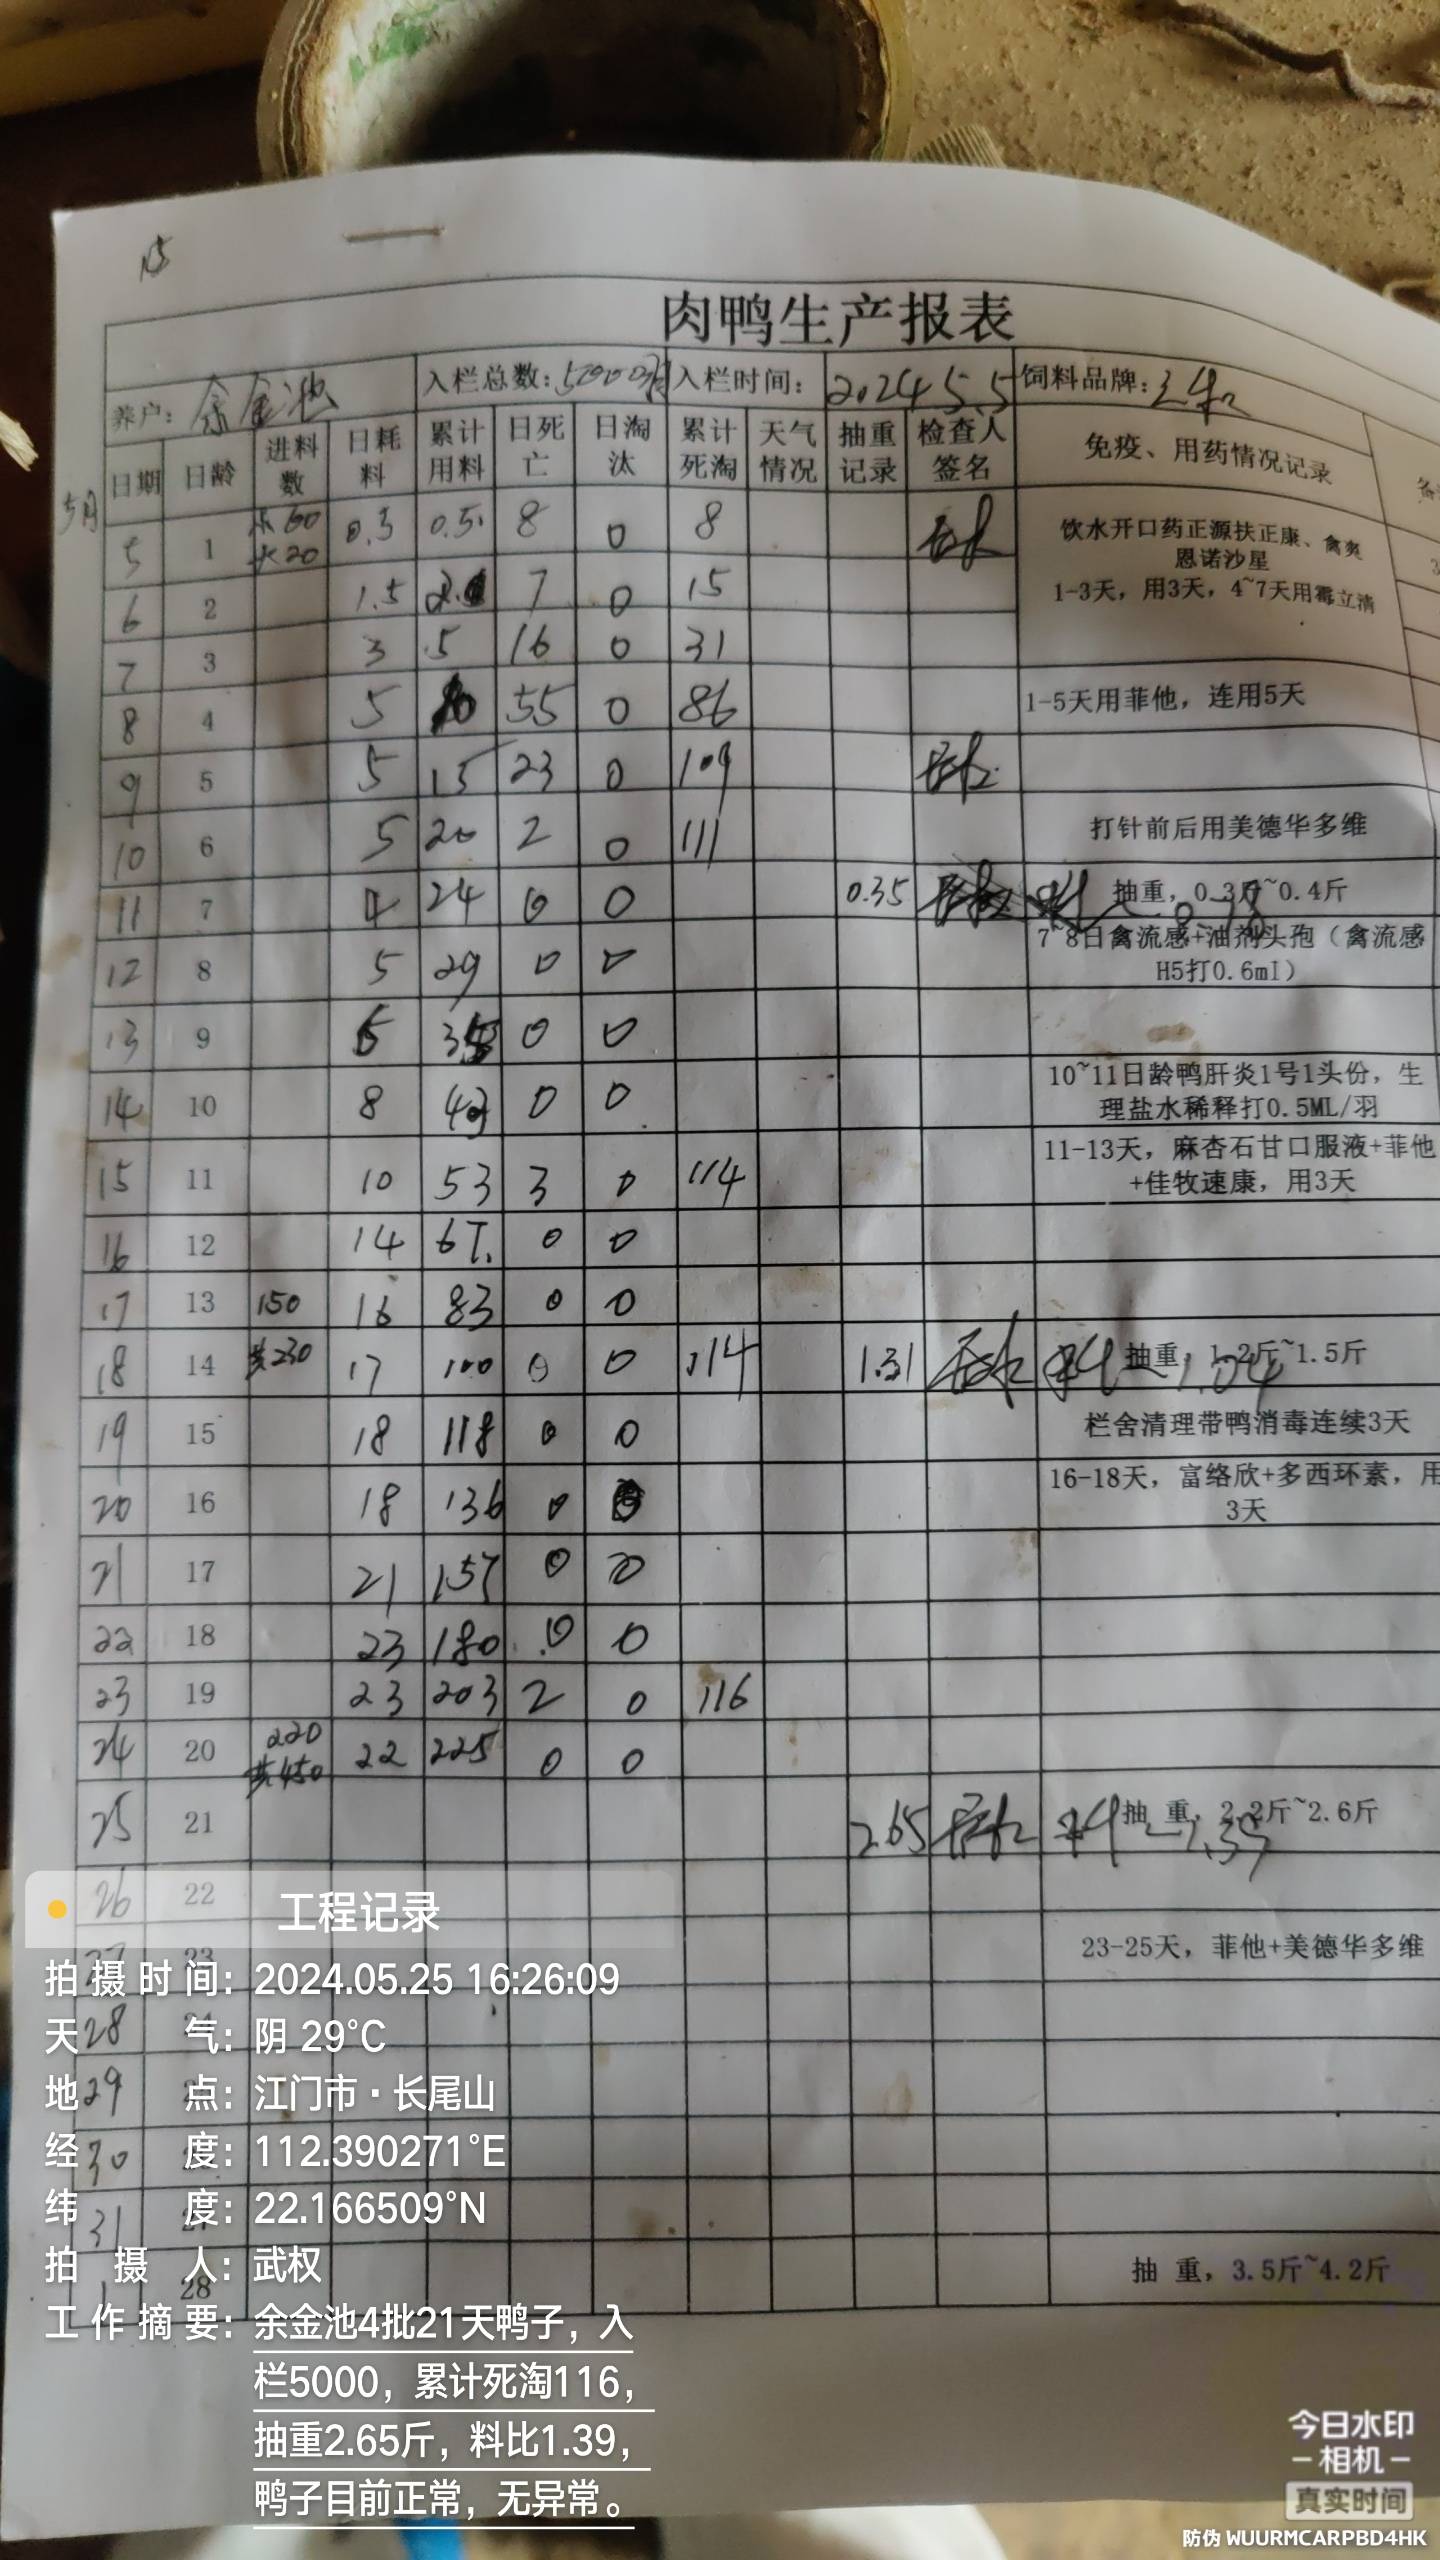 肉鸭生产报表
养户：余金池 入栏总数：5000羽 入栏时间：2024 5.5 饲料品牌：
日期 日龄 进料数 日耗料 累计用料 日死亡 日淘汰 累计死淘 天气情况 抽重记录 检查人签名 免疫、用药情况记录
5月
5 1 60 20 0.5 0.5 8 0 8 饮水开口药正源扶正康、禽爽
恩诺沙星
1-3天，用3天，4~7天用霉立清
6 2 1.5 7 0 15
7 3 3 5 16 0 31
8 4 5 10 55 0 86 1-5天用菲他，连用5天
9 5 5 15 23 0 109
10 6 5 20 2 0 111 打针前后用美德华多维
11 7 4 24 0 0 0.35 抽重，0.3斤~0.4斤
7~8日禽流感+油剂头孢（禽流感
12 8 5 29 0 0 H5打0.6ml）
13 9 6 35 0 0
14 10 8 43 0 0 10~11日龄鸭肝炎1号1头份，生
理盐水稀释打0.5ML/羽
15 11 10 53 3 0 114 11-13天，麻杏石甘口服液+菲他
+佳牧速康，用3天
16 12 14 67 0 0
17 13 150 16 83 0 0
18 14 共230 17 100 0 0 114 1.31 抽重，1.2斤~1.5斤 料 1.04
19 15 18 118 0 0 栏舍清理带鸭消毒连续3天
20 16 18 136 0 0 16-18天，富络欣+多西环素，用
3天
21 17 21 157 0 0
22 18 23 180 0 0
23 19 23 203 2 0 116
24 20 220 共450 22 225 0 0
25 21 2.65 抽 重，2.2斤~2.6斤 料 1.39
26 22
27 23 23-25天，菲他+美德华多维
28
29
30
31
1 28 抽 重，3.5斤~4.2斤
工程记录
拍摄时间：2024.05.25 16:26:09
天气：阴 29°C
地点：江门市·长尾山
经度：112.390271°E
纬度：22.166509°N
拍摄人：武权
工作摘要：余金池4批21天鸭子，入
栏5000，累计死淘116，
抽重2.65斤，料比1.39，
鸭子目前正常，无异常。
今日水印
相机
真实时间
防伪 WUURMCARPBD4HK